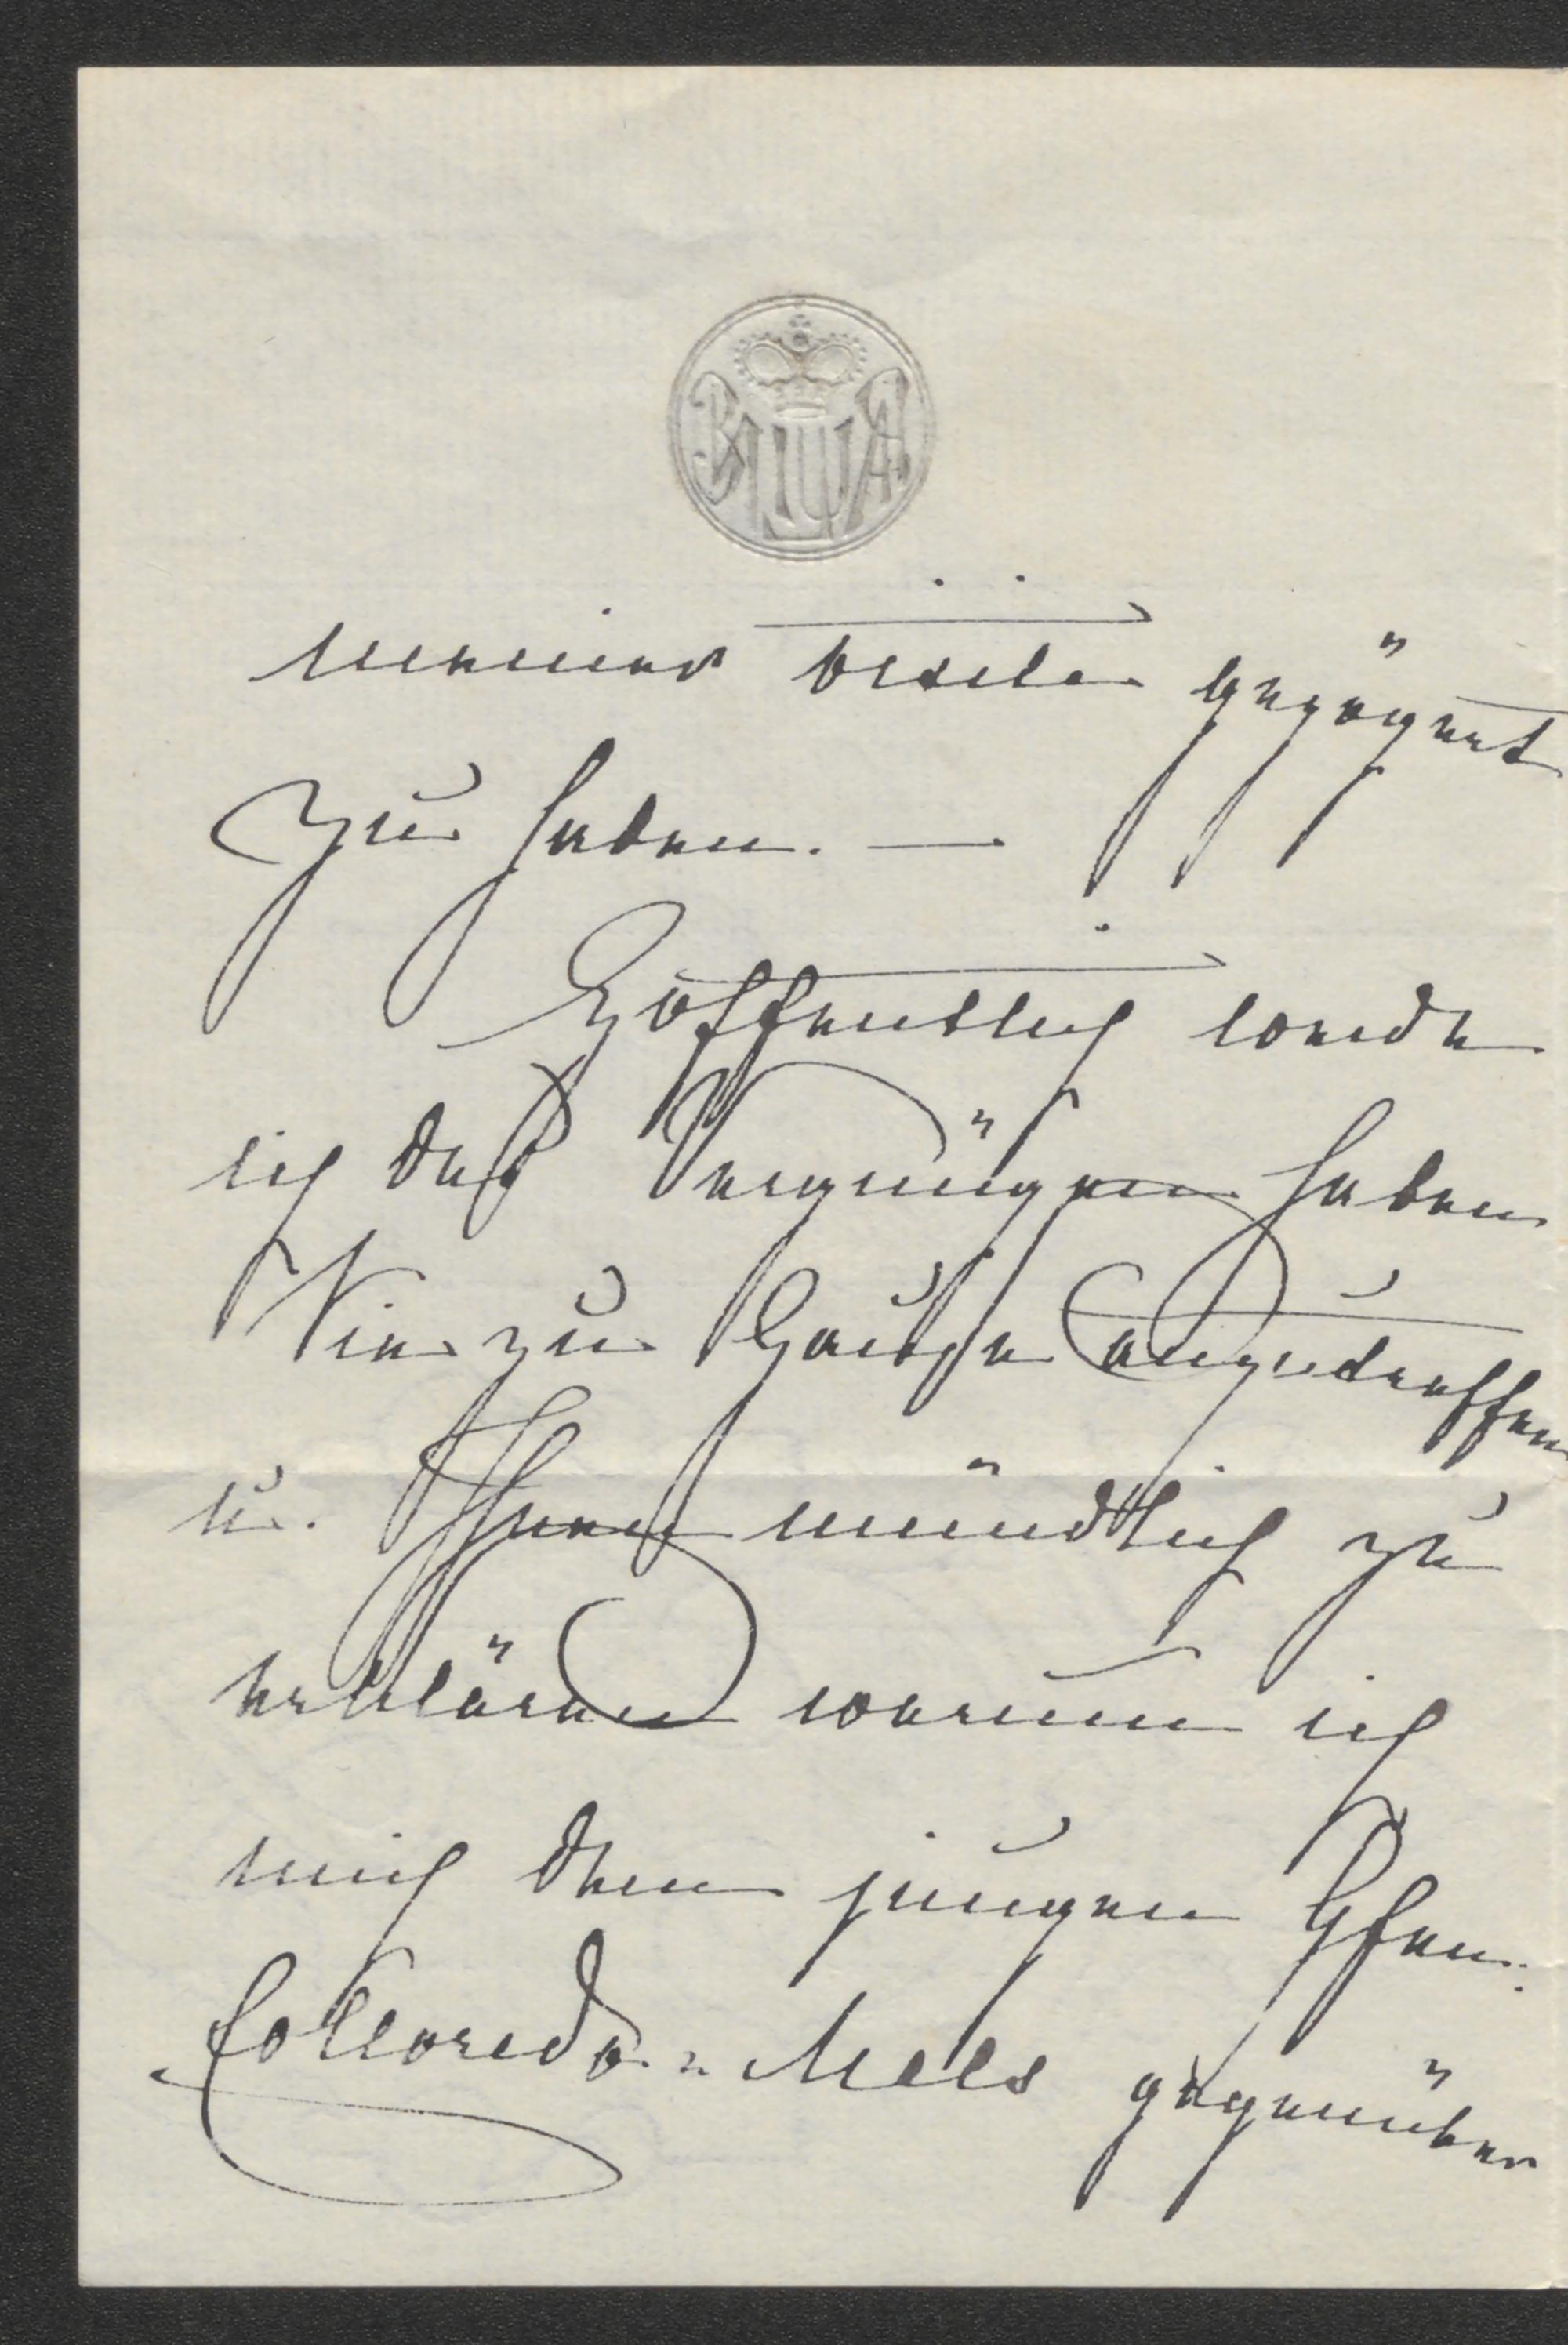 meiner visite gezögert
zu haben. —
Hoffentlich werde
ich das Vergnügen haben
Sie zu Hause anzutreffen
u. Ihnen mündlich zu
erklären warum ich
mich dem jungen Gfen.
Colloredo-Mels gegenüber